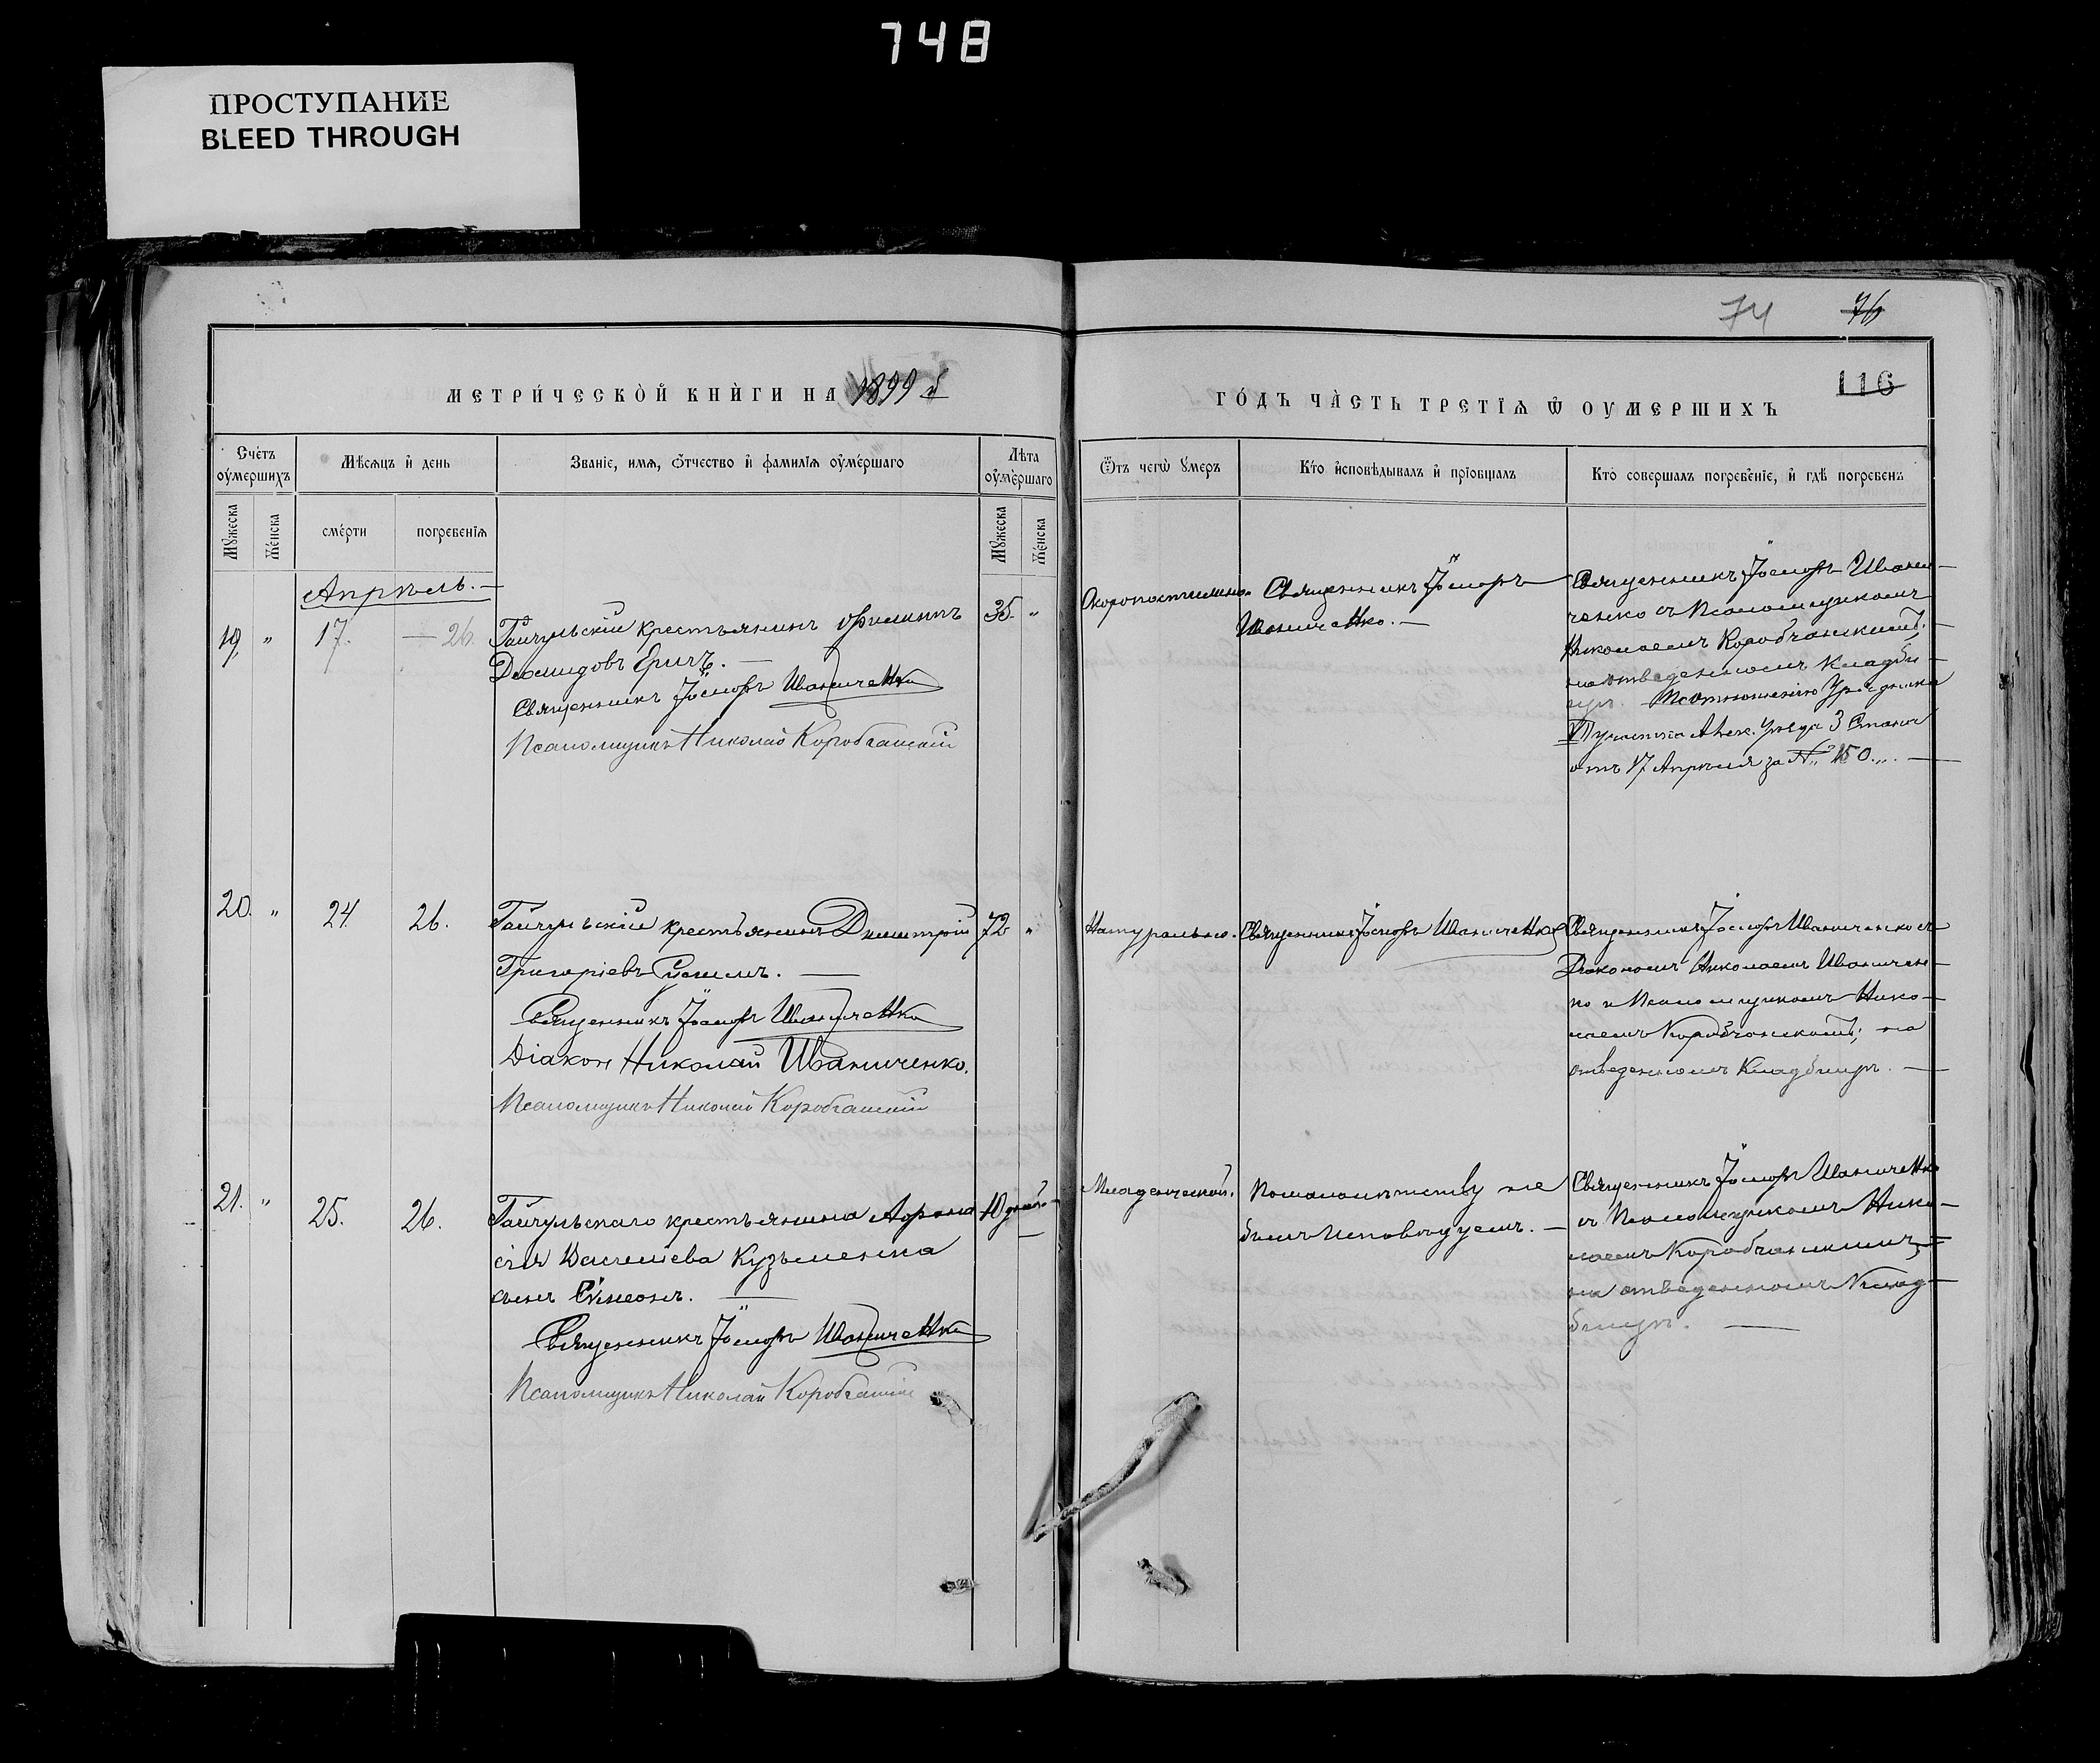 748
ПРОСТУПАНИЕ
BLEED THROUGH
74 76
116
МЕТРИ́ЧЕСКОЙ КНИ́ГИ НА 1899 й
ГО́ДЪ ЧА́СТЬ ТРЕТІѦ Ѿ ОУМЕРШИХЪ
Счётъ оумершихъ
Мѣсяцъ и день
Званіе, имя, отчество и фамилія оумершаго
Лѣта оумершаго
Отъ чего умеръ
Кто исповѣдывалъ и пріобщалъ
Кто совершалъ погребеніе, и гдѣ погребенъ
Мужеска
Женска
смерти
погребенія
Мужеска
Женска
Апрѣль.
19. " 17. — 26.
Гайчульскій крестьянинъ Филиппъ
Діомидовъ Ерич. —
Священникъ Іосифъ Иваниченко
Псаломщикъ Николай Коробчанскій
35. "
Скоропостижно.
Священникъ Іосифъ
Иваниченко. —
Священникъ Іосифъ Ивани-
ченко съ Псаломщикомъ
Николаемъ Коробчанскимъ,
на отведенномъ кладби-
щѣ. По отношенію Урядника
VI участка Алек. Уѣзда 3 Стана
отъ 17 Апрѣля за № 150. —
20. " 24. 26.
Гайчульскій крестьянинъ Димитрій
Григоріевъ —
Священникъ Іосифъ Иваниченко
Діаконъ Николай Иваниченко.
Псаломщикъ Николай Коробчанскій
72 "
Натурально.
Священникъ Іосифъ Иваниченко
Священникъ Іосифъ Иваниченко съ
Діакономъ Николаемъ Иваничен-
ко и Псаломщикомъ Нико-
лаемъ Коробчанскимъ; на
отведенномъ Кладбищѣ. —
21. " 25. 26.
Гайчульскаго крестьянина Афана
сія Кузьменка
сынъ Сѵмеонъ. —
Священникъ Іосифъ Иваниченко
Псаломщикъ Николай Коробчанскій
10 дней
Младенческой.
По малолѣтству не
былъ исповѣдуемъ. —
Священникъ Іосифъ Иваниченко
съ Псаломщикомъ Нико-
лаемъ Коробчанскимъ,
на отведенномъ Клад-
бищѣ. —